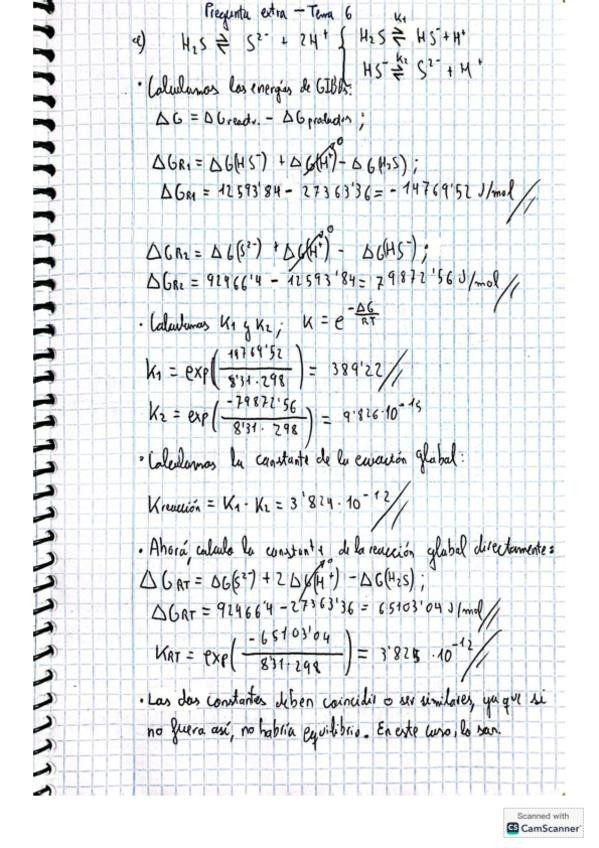 Pregunta extra - Tema 6
a) H₂S ⇌ S²⁻ + 2H⁺ { H₂S ⇌ HS⁻ + H⁺ K₁
HS⁻ ⇌ S²⁻ + H⁺ K₂
· Calculamos las energías de GIBBS:
ΔG = ΔGreactv. - ΔGproductos ;
ΔGR1 = ΔG(HS⁻) + ΔG(H⁺) - ΔG(H₂S) ; 0
ΔGR1 = 12593'84 - 27363'36 = - 14769'52 J/mol //
ΔGR2 = ΔG(S²⁻) + ΔG(H⁺) - ΔG(HS⁻) ; 0
ΔGR2 = 92466'4 - 12593'84 = 79872'56 J/mol //
· Calculamos K₁ y K₂ ; K = e^(-ΔG/RT)
K₁ = exp(14769'52 / 8'31 · 298) = 389'22 //
K₂ = exp(-79872'56 / 8'31 · 298) = 9'826·10⁻¹⁵
· Calculamos la constante de la ecuación global:
Kreacción = K₁ · K₂ = 3'824 · 10⁻¹² //
· Ahora, calculo la constante de la reacción global directamente:
ΔGRT = ΔG(S²⁻) + 2ΔG(H⁺) - ΔG(H₂S) ; 0
ΔGRT = 92466'4 - 27363'36 = 65103'04 J/mol //
KRT = exp(-65103'04 / 8'31 · 298) = 3'825 · 10⁻¹² //
· Las dos constantes deben coincidir o ser similares, ya que si
no fuera así, no habría equilibrio. En este caso, lo son.
Scanned with
CS CamScanner